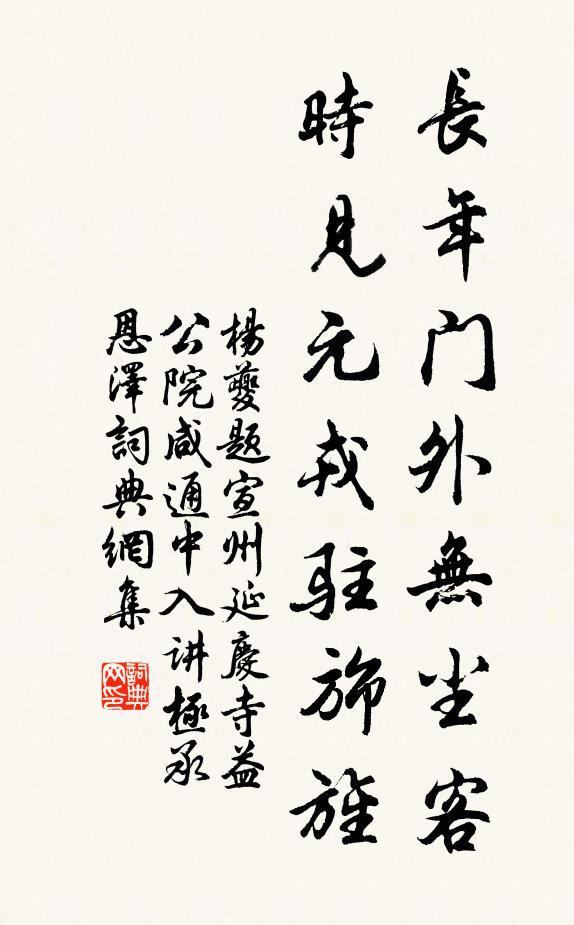 長年门外無尘客
時見元戎駐旆旌
楊夔题宣州延慶寺益
公院咸通中入讲極承
恩澤詞典網集
詞典网印